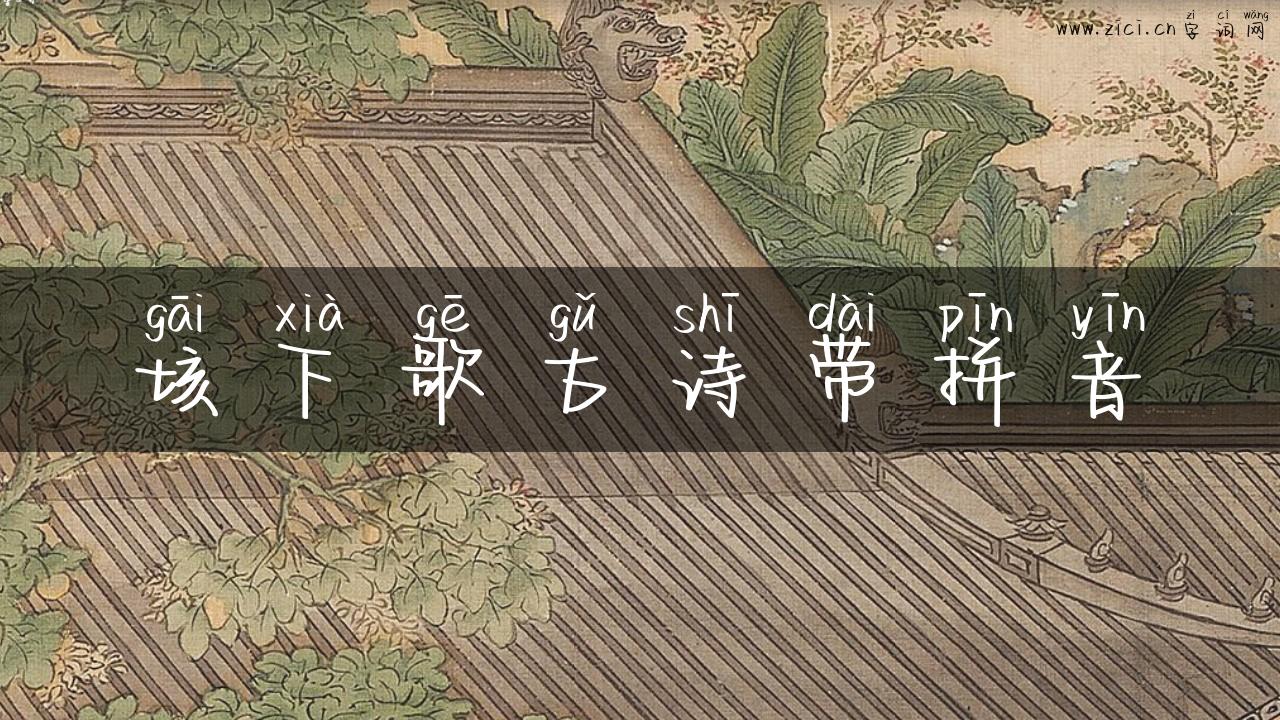 zì cí wǎng
www.zici.cn 字词网
gāi xià gē gǔ shī dài pīn yīn
垓下歌古诗带拼音